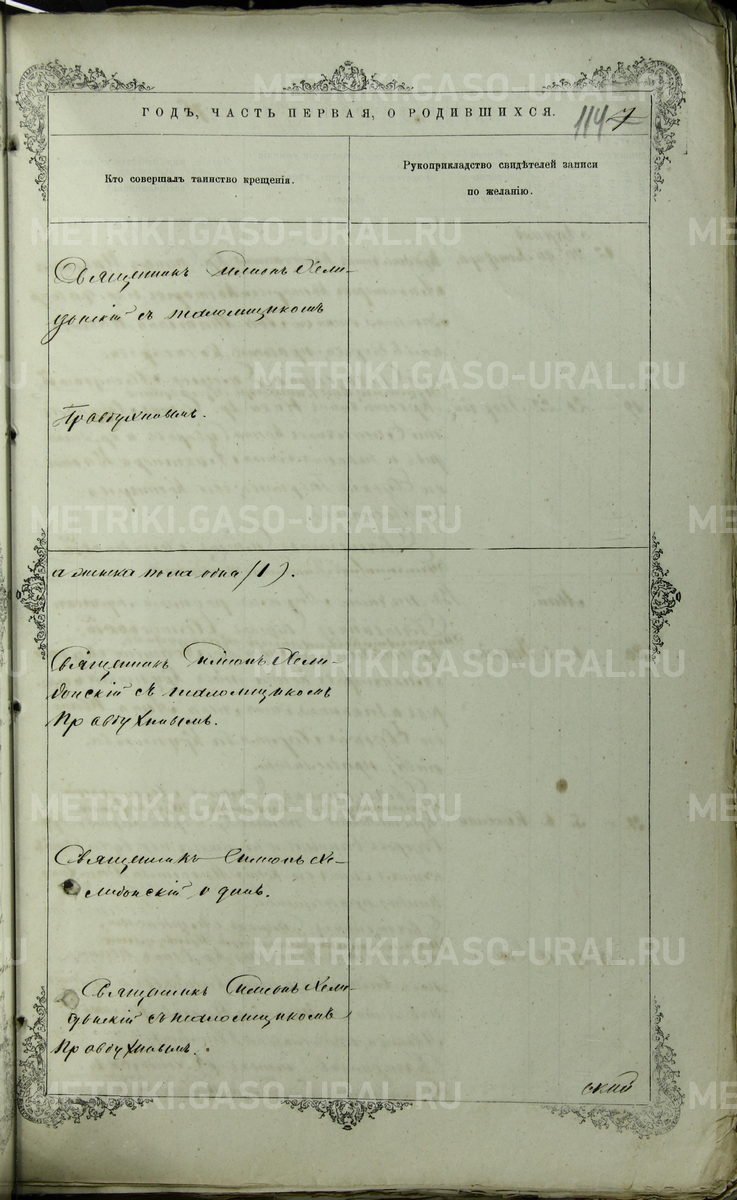 ГОДЪ, ЧАСТЬ ПЕРВАЯ, О РОДИВШИХСЯ.
114
Кто совершалъ таинство крещенія.
Рукоприкладство свидѣтелей записи
по желанію.
Священникъ Симеонъ Хели-
донскій съ псаломщикомъ
Правдухинымъ.
а женска пола одна (1).
Священникъ Симеонъ Хели-
донскій съ псаломщикомъ
Правдухинымъ.
Священникъ Симеонъ Хе-
лидонскій одинъ.
Священникъ Симеонъ Хели-
донскій съ псаломщикомъ
Правдухинымъ.
скій
METRIKI.GASO-URAL.RU